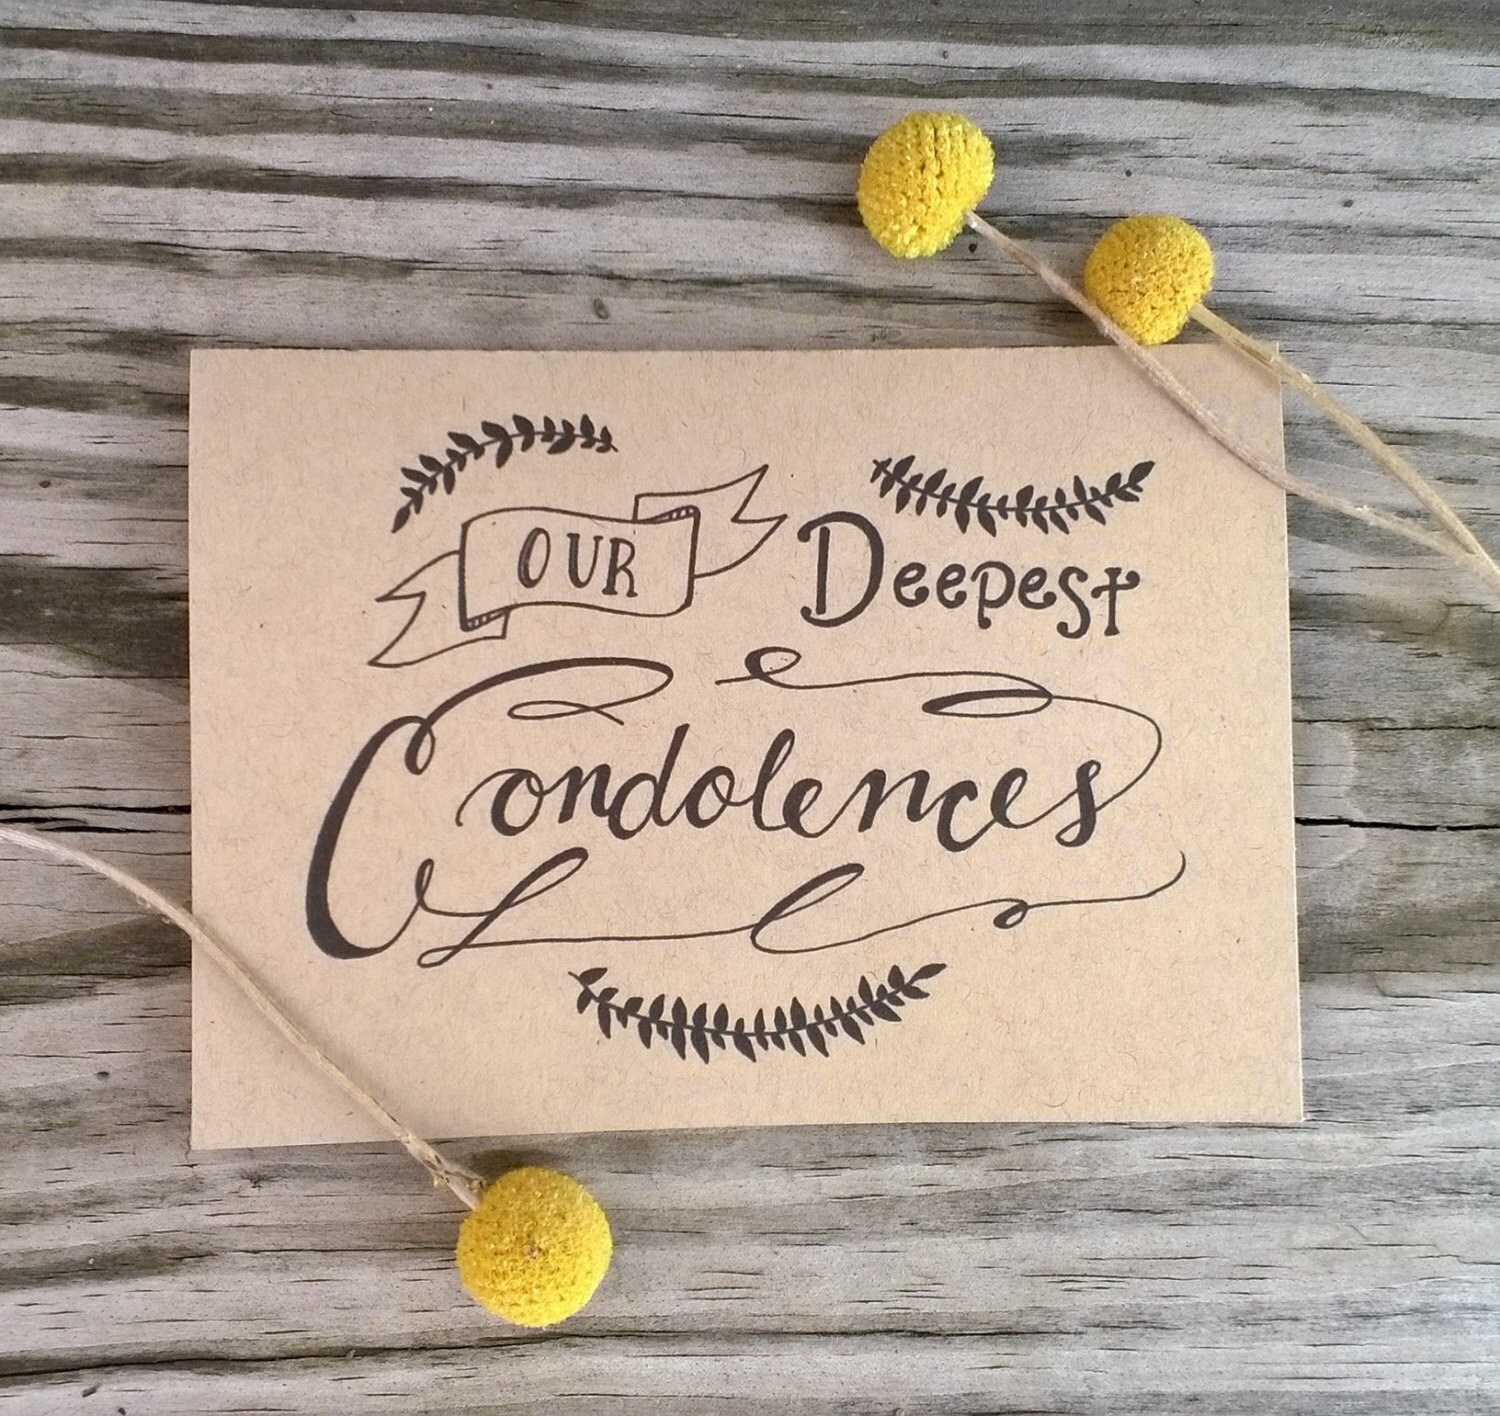 OUR Deepest
Condolences